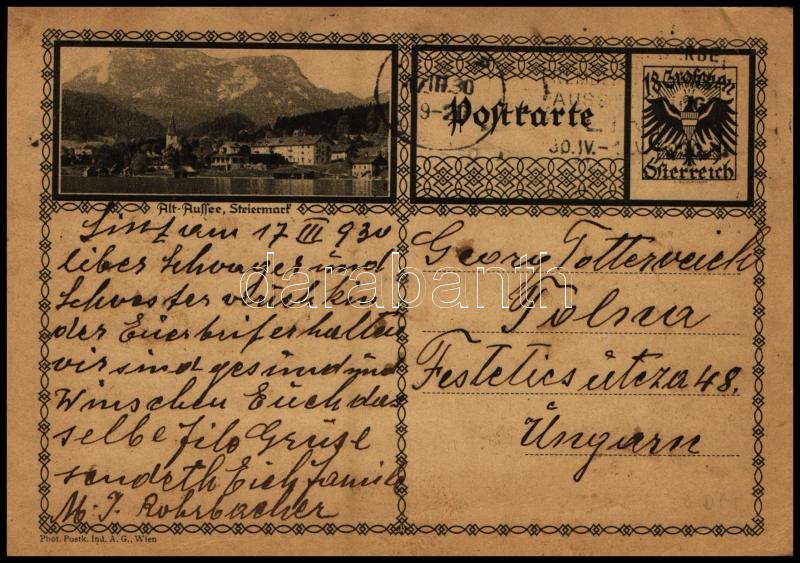 17.III.30
9-2
AUSS
30.IV.-
Postkarte
18 Groschen
Österreich
Alt-Aussee, Steiermark
Linz am 17 III 930
liber Schwager und
Schwester u
der Euer brif erhalten
wir sind gesund und
Winschen Euch das
selbe file Grüse
sendeth Eich familie
M. J. Rohrbacher
Georg Totterveich
Tolna
Festetics útcza 48.
Üngarn
Phot. Postk. Ind. A. G., Wien
darabanth